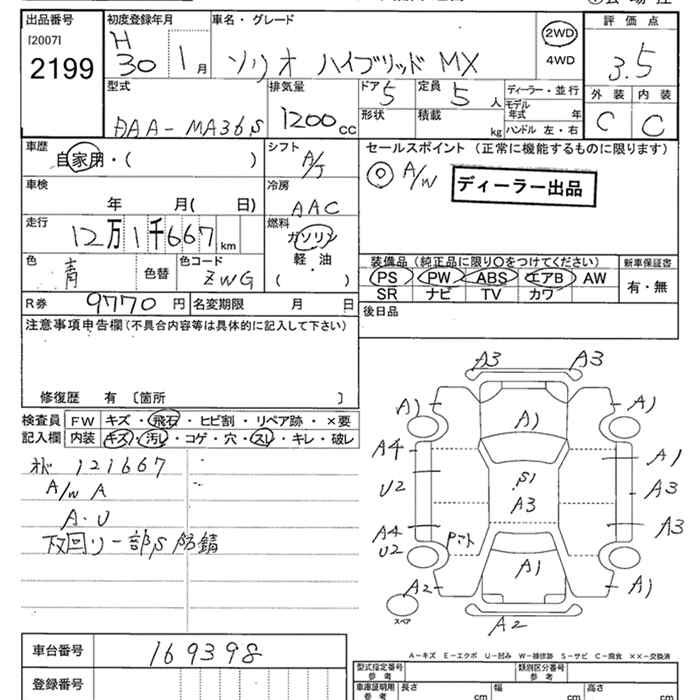 出品番号
[2007]
2199
初度登録年月
H
30 1 月
車名・グレード
ソリオ ハイブリッド MX
2WD
4WD
評価点
3.5
外装 内装
C C
型式
DAA-MA36S
排気量
1200 cc
ドア 5
形状
定員 5 人
積載 kg
ディーラー・並行
モデル年式 年
ハンドル 左・右
車歴
自家用・( )
シフト
A/T
セールスポイント (正常に機能するものに限ります)
◎ A/W
ディーラー出品
車検
年 月( 日)
冷房
AAC
走行
12万1千667 km
燃料
ガソリン
軽・油
・
( )
色
青
色替
色コード
ZWG
装備品(純正品に限り○をつけてください)
PS PW ABS エアB AW
SR ナビ TV カワ
新車保証書
有・無
R券 9770 円
名変期限 月 日
後日品
注意事項申告欄(不具合内容等は具体的に記入して下さい)
修復歴 有 〔箇所 〕
検査員
記入欄
FW キズ・飛石・ヒビ割・リペア跡・×要
内装 キズ・汚レ・コゲ・穴・スレ・キレ・破レ
121667
A/W A
A・U
下回リ一部S防錆
A3 A3
A1 A1 A1
A4 A1
U2 S1 A3
A3
A4 A3
U2
A2 A1 A1
A2
スペア
A-キズ E-エクボ U-凹み W-補修跡 S-サビ C-腐食 ××-交換済
車台番号
169398
登録番号
型式指定番号
参考
類別区分番号
参考
車庫証明用
参考
長さ cm 幅 cm 高さ cm